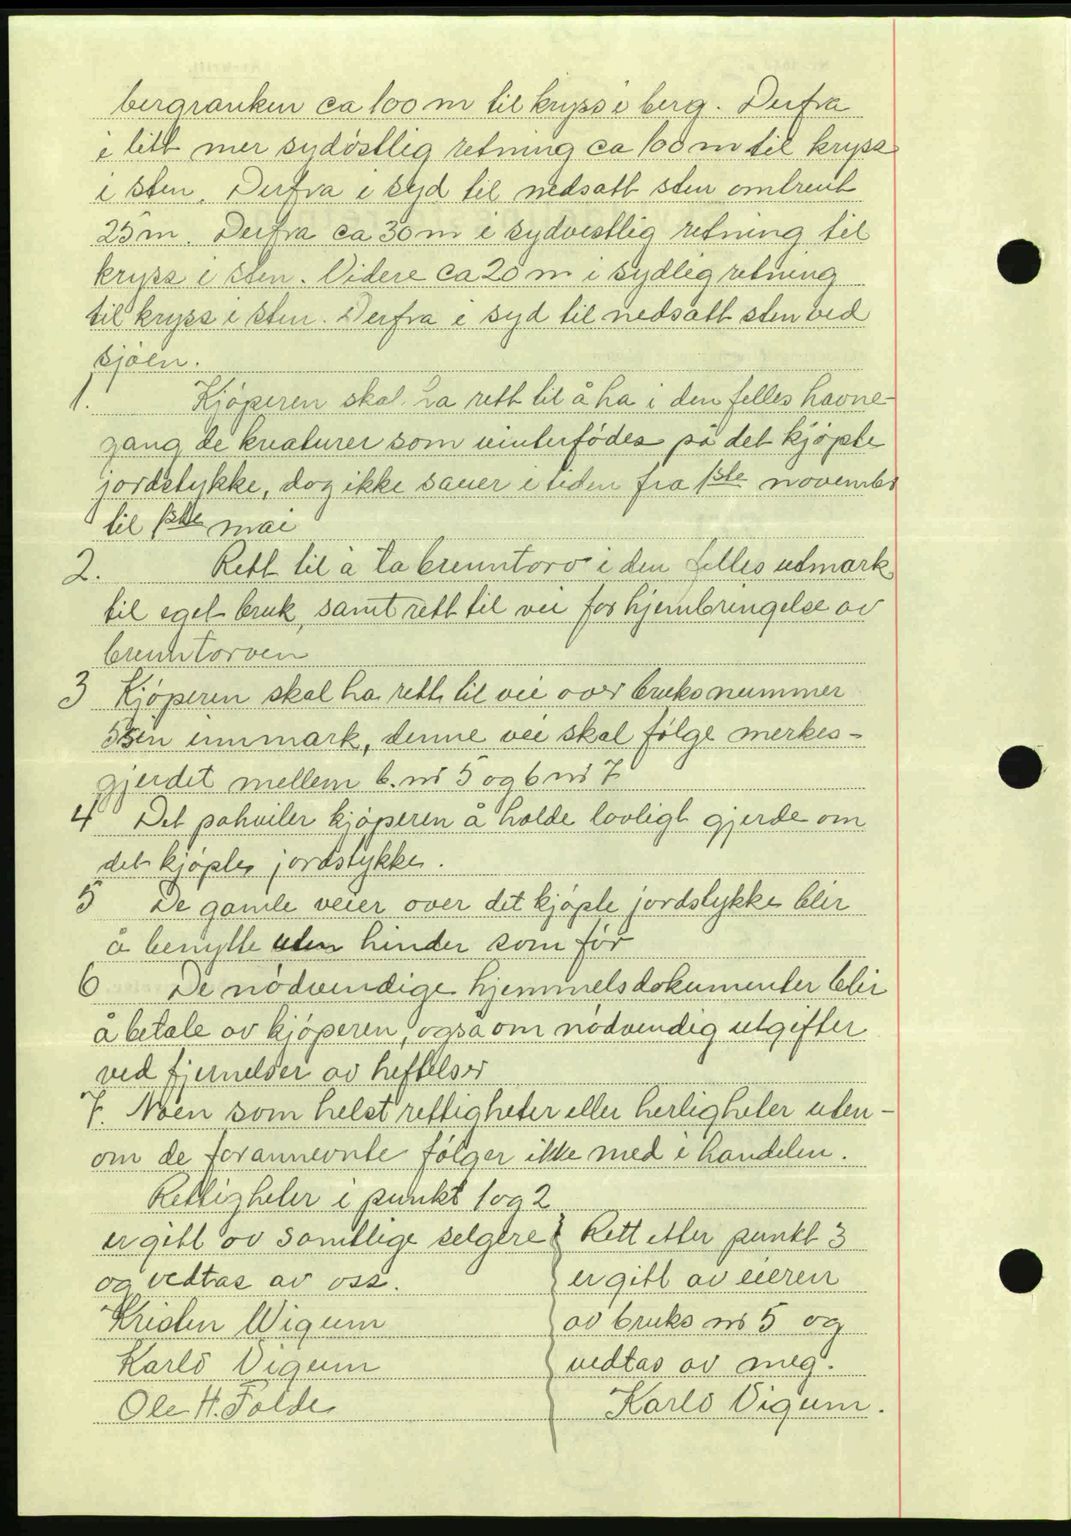 bergranken ca 100 m til kryss i berg. Derfra
i litt mer sydöstlig retning ca 100 m til kryss
i sten. Derfra i syd til nedsatt sten omtrent
25 m. Derfra ca 30 m i sydvestlig retning til
kryss i sten. Videre ca 20 m i sydlig retning
til kryss i sten. Derfra i syd til nedsatt sten ved
sjöen.
1. Kjöperen skal ha rett til å ha i den felles havne-
gang de kreaturer som vinterfödes på det kjöpte
jordstykke, dog ikke sauer i tiden fra 1ste november
til 1ste mai
2. Rett til å ta brenntorv i den felles utmark
til eget bruk, samt rett til vei for hjembringelse av
brenntorven
3 Kjöperen skal ha rett til vei over bruksnummer
5 sin innmark, denne vei skal fölge merkes-
gjerdet mellem b. nr 5 og b nr 7
4 Det pahviler kjöperen å holde lovligt gjerde om
det kjöpte jordstykke.
5 De gamle veier over det kjöpte jordstykke blir
å benytte uten hinder som för
6 De nödvendige hjemmelsdokumenter blir
å betale av kjöperen, også om nödvendig utgifter
ved fjernelser av heftelser
7. Noen som helst rettigheter eller herligheter uten-
om de forannevnte fölger ikke med i handelen.
Rettigheter i punkt 1 og 2
er gitt av samtlige selgere
og vedtas av oss.
Kristen Wigum
Karlo Vigum
Ole H. Folde
Rett etter punkt 3
er gitt av eieren
av bruks nr 5 og
vedtas av meg.
Karlo Vigum.